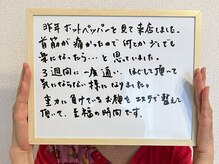 昨年ホットペッパーを見て来店しました。
首筋が痛かったので何とか少しでも
楽になったら…と思っていました。
3週間に一度通い、ほぐして頂いて
気にならない様になりました。
主力に負けているお顔をエステで整えて
頂いて、至福の時間です。